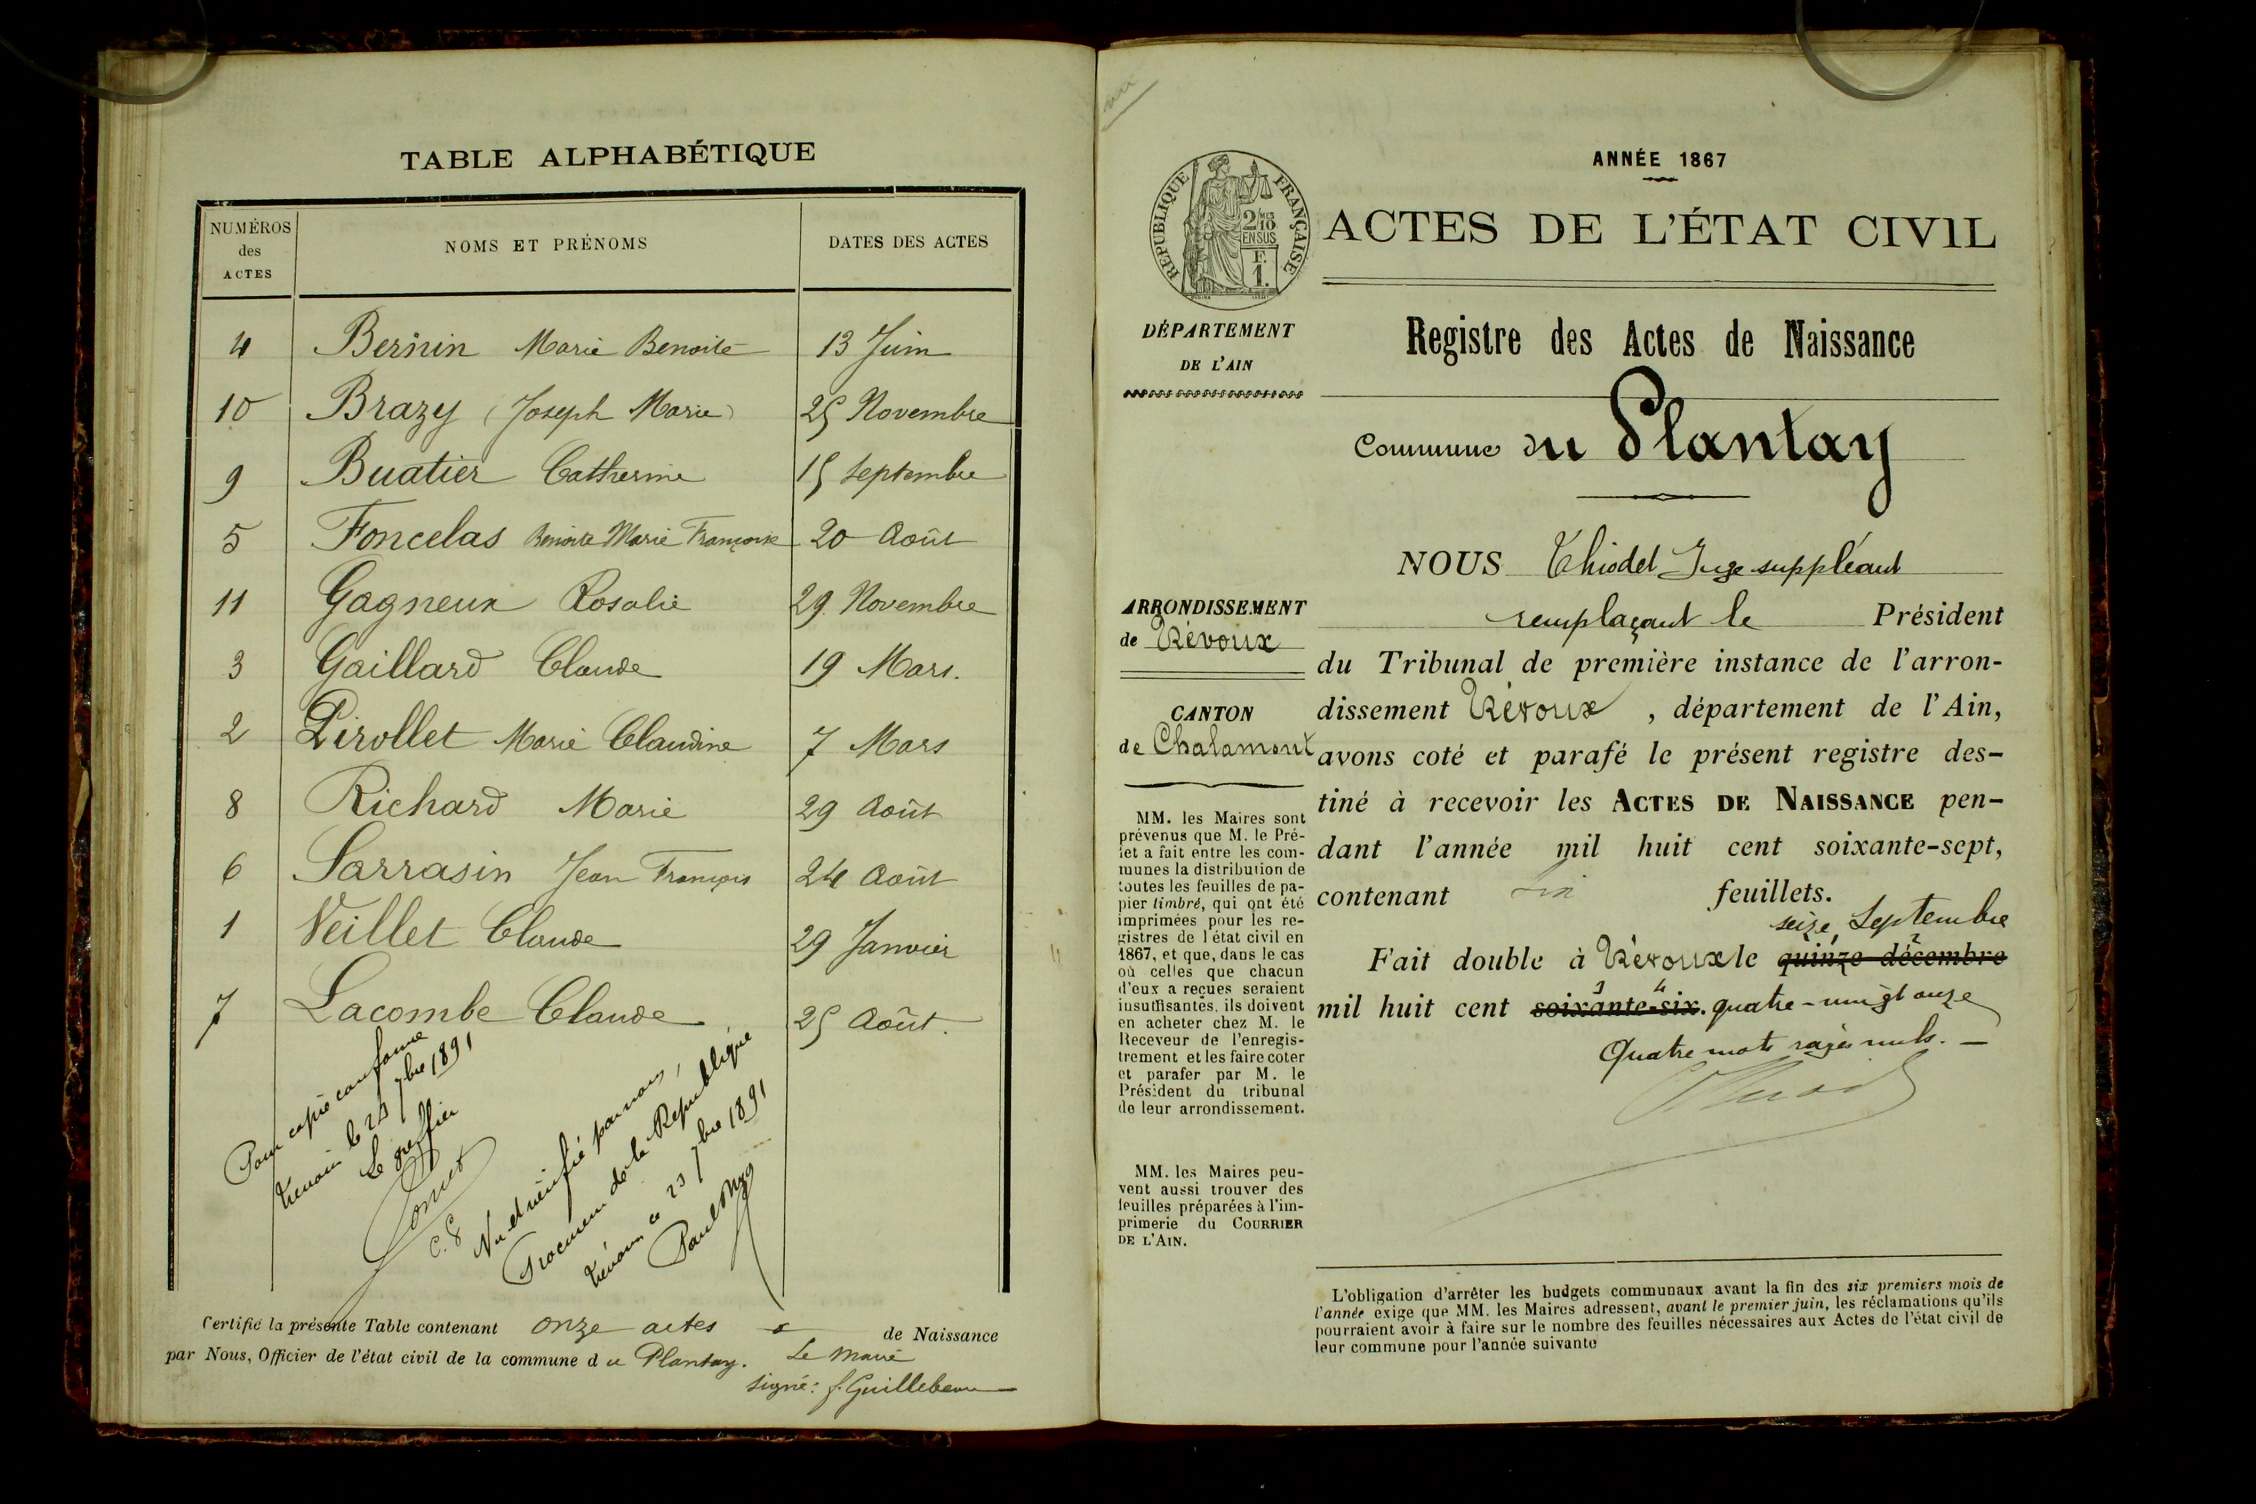 TABLE ALPHABÉTIQUE
NUMÉROS des ACTES NOMS ET PRÉNOMS DATES DES ACTES
4 Bernin Marie Benoite 13 Juin
10 Brazy (Joseph Marie) 25 Novembre
9 Buatier Catherine 15 septembre
5 Foncelas Benoite Marie Françoise 20 Août
11 Gagneux Rosalie 29 Novembre
3 Gaillard Claude 19 Mars.
2 Pirollet Marie Claudine 7 Mars
8 Richard Marie 29 Août
6 Sarrasin Jean François 24 Août
1 Veillet Claude 29 Janvier
7 Lacombe Claude 25 Août.
Pour copie conforme
Trévoux le 23 7bre 1891
Le greffier
C. G
Vu et vérifié par nous,
Procureur de la République
Trévoux ce 23 7bre 1891
Paul
Certifié la présente Table contenant onze actes de Naissance
par Nous, Officier de l'état civil de la commune du Plantay. Le Maire
signé: f. Guillebeau
RÉPUBLIQUE FRANÇAISE
2/10 EN SUS
F. 1.
ANNÉE 1867
ACTES DE L'ÉTAT CIVIL
DÉPARTEMENT
DE L'AIN
Registre des Actes de Naissance
Commune du Plantay
ARRONDISSEMENT
de Trévoux
CANTON
de Chalamont
MM. les Maires sont
prévenus que M. le Pré-
fet a fait entre les com-
munes la distribution de
toutes les feuilles de pa-
pier timbré, qui ont été
imprimées pour les re-
gistres de l'état civil en
1867, et que, dans le cas
où celles que chacun
d'eux a reçues seraient
insuffisantes, ils doivent
en acheter chez M. le
Receveur de l'enregis-
trement et les faire coter
et parafer par M. le
Président du tribunal
de leur arrondissement.
MM. les Maires peu-
vent aussi trouver des
feuilles préparées à l'im-
primerie du COURRIER
DE L'AIN.
NOUS Thiodet Juge suppléant
remplaçant le Président
du Tribunal de première instance de l'arron-
dissement Trévoux, département de l'Ain,
avons coté et parafé le présent registre des-
tiné à recevoir les ACTES DE NAISSANCE pen-
dant l'année mil huit cent soixante-sept,
contenant six feuillets.
seize Septembre
Fait double à Trévoux le quinze décembre
mil huit cent soixante-six. quatre-vingt onze
Quatre mots rayés nuls.
L'obligation d'arrêter les budgets communaux avant la fin des six premiers mois de
l'année exige que MM. les Maires adressent, avant le premier juin, les réclamations qu'ils
pourraient avoir à faire sur le nombre des feuilles nécessaires aux Actes de l'état civil de
leur commune pour l'année suivante